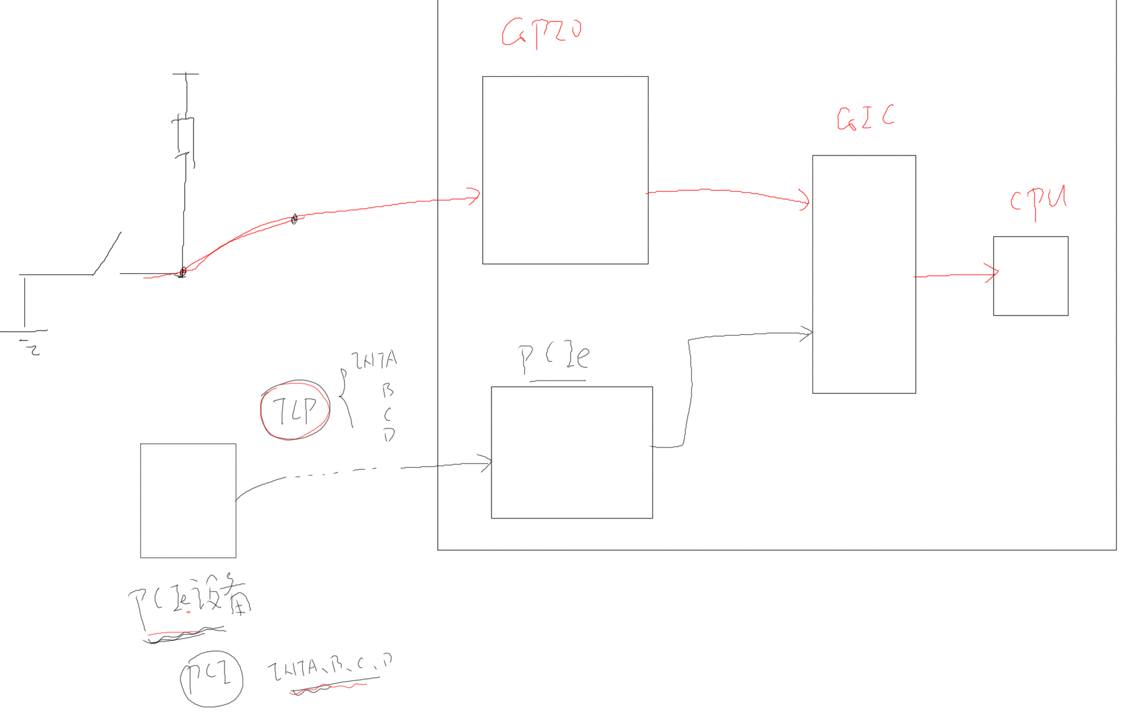 GPIO
GIC
CPU
PCIe
TLP
INTA
B
C
D
PCIe设备
PCI
INTA、B、C、D